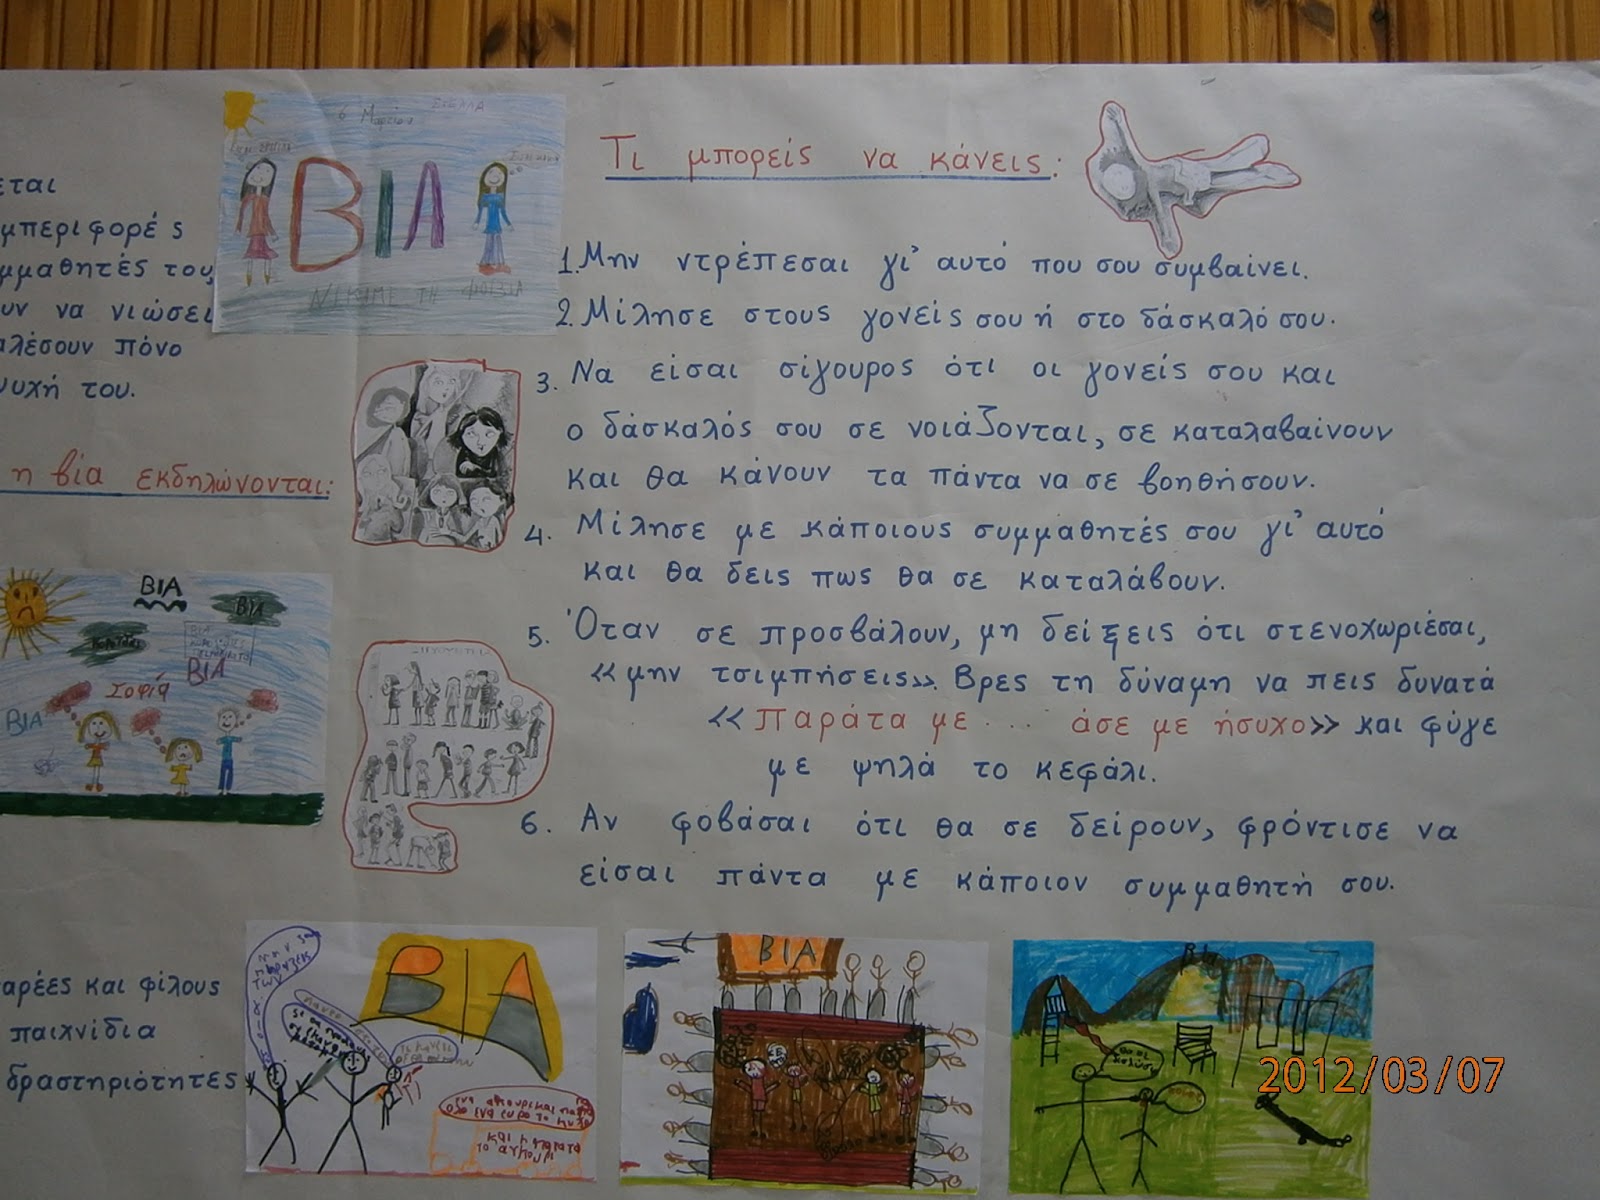 εται
μπεριφορές
μμαθητές του,
ουν να νιώσει
αλέσουν πόνο
ψυχή του.
η βία εκδηλώνονται:
6 Μαρτίου
ΒΙΑ
ΝΙΚΑΜΕ ΤΗ ΦΟΒΙΑ
ΒΙΑ
ΒΙΑ
ΒΙΑ
ΒΙΑ
Σοφία
ΒΙΑ
Τι μπορείς να κάνεις:
1. Μην ντρέπεσαι γι' αυτό που σου συμβαίνει.
2. Μίλησε στους γονείς σου ή στο δάσκαλό σου.
3. Να είσαι σίγουρος ότι οι γονείς σου και
ο δάσκαλός σου σε νοιάζονται, σε καταλαβαίνουν
και θα κάνουν τα πάντα να σε βοηθήσουν.
4. Μίλησε με κάποιους συμμαθητές σου γι' αυτό
και θα δεις πως θα σε καταλάβουν.
5. Όταν σε προσβάλουν, μη δείξεις ότι στενοχωριέσαι,
«μην τσιμπήσεις». Βρες τη δύναμη να πεις δυνατά
«Παράτα με .... άσε με ήσυχο» και φύγε
με ψηλά το κεφάλι.
6. Αν φοβάσαι ότι θα σε δείρουν, φρόντισε να
είσαι πάντα με κάποιον συμμαθητή σου.
αρέες και φίλους
παιχνίδια
δραστηριότητες
ΒΙΑ
ΒΙΑ
Βία
2012/03/07